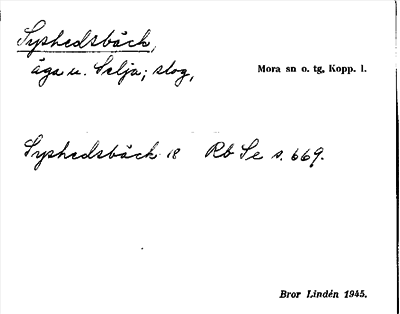 Syshedsbäck,
äga u. Selja; skog,
Mora sn o. tg, Kopp. l.
Syshedsbäck 18 Rb Se s. 669.
Bror Lindén 1945.